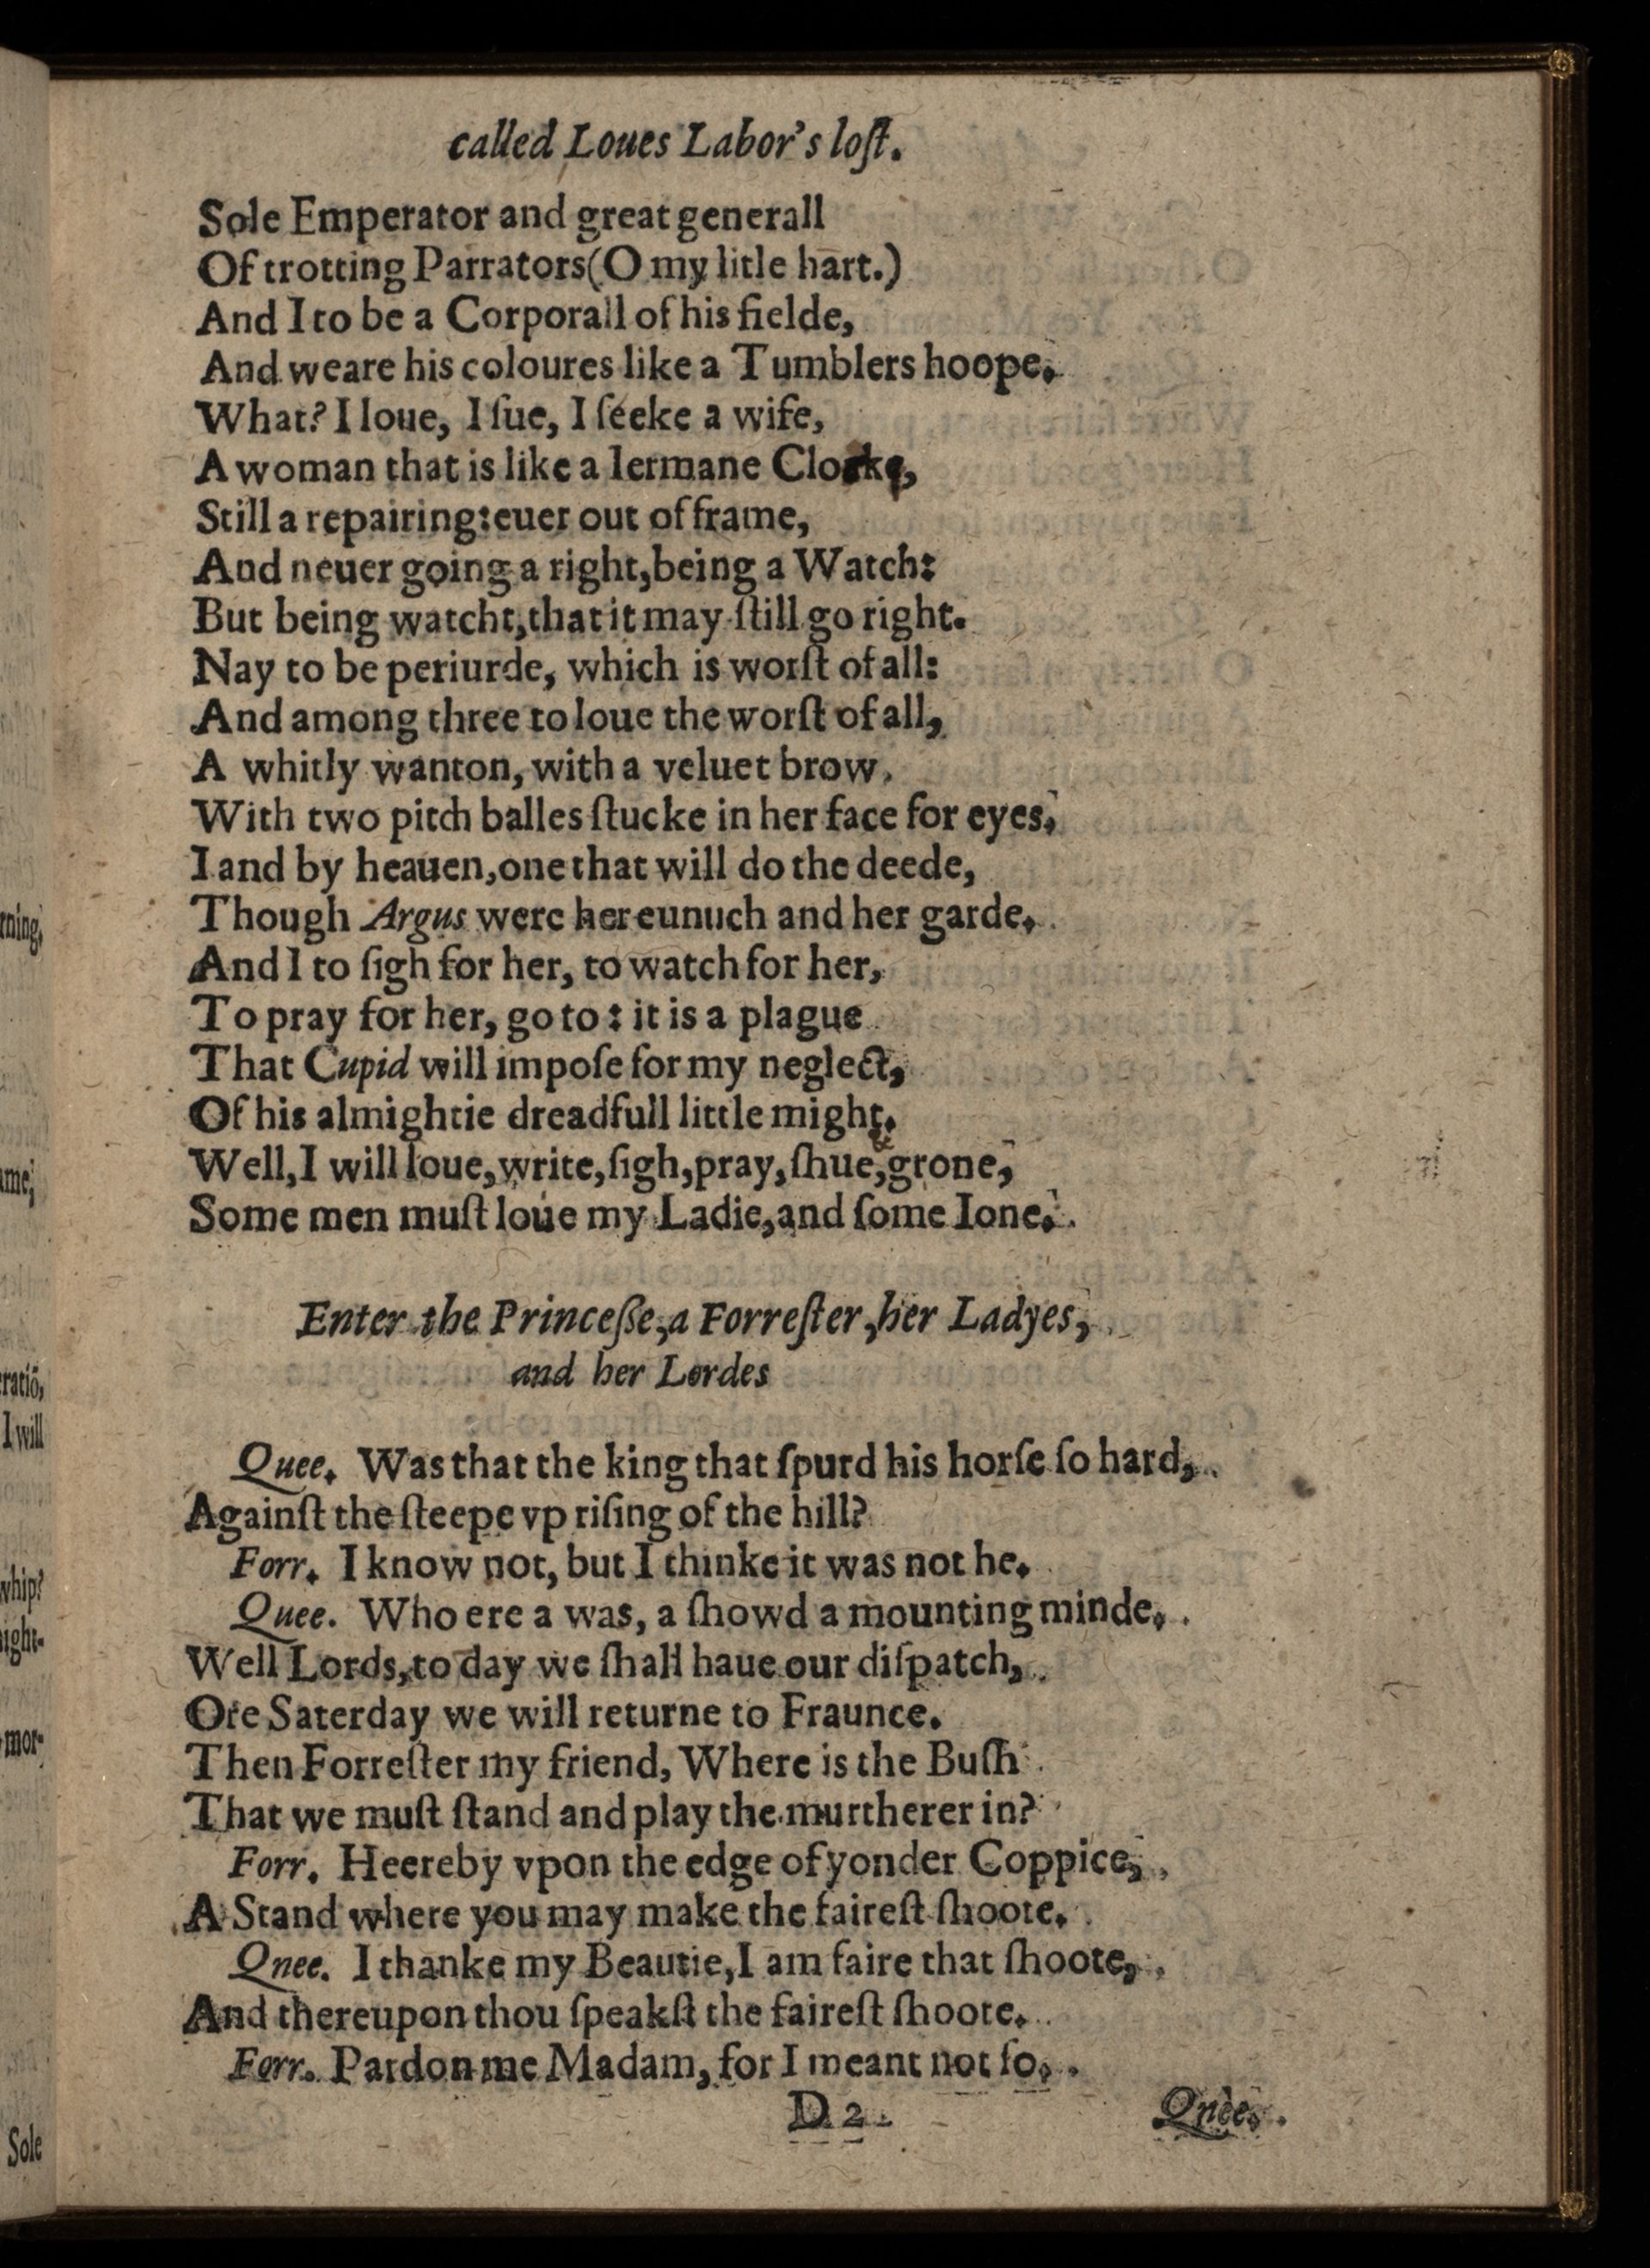 called Loues Labor's loſt.
Sole Emperator and great generall
Of trotting Parrators (O my litle hart.)
And I to be a Corporall of his fielde,
And weare his coloures like a Tumblers hoope.
What? I loue, I ſue, I ſeeke a wife,
A woman that is like a Iermane Clocke,
Still a repairing: euer out of frame,
And neuer going a right, being a Watch:
But being watcht, that it may ſtill go right.
Nay to be periurde, which is worſt of all:
And among three to loue the worſt of all,
A whitly wanton, with a veluet brow.
With two pitch balles ſtucke in her face for eyes.
I and by heauen, one that will do the deede,
Though Argus were her eunuch and her garde.
And I to ſigh for her, to watch for her,
To pray for her, go to: it is a plague
That Cupid will impoſe for my neglect,
Of his almightie dreadfull little might.
Well, I will loue, write, ſigh, pray, ſhue, & grone,
Some men muſt loue my Ladie, and ſome Ione.
Enter the Princeſſe, a Forreſter, her Ladyes,
and her Lordes
Quee. Was that the king that ſpurd his horſe ſo hard,
Againſt the ſteepe vp riſing of the hill?
Forr. I know not, but I thinke it was not he.
Quee. Who ere a was, a ſhowd a mounting minde.
Well Lords, to day we ſhall haue our diſpatch,
Ore Saterday we will returne to Fraunce.
Then Forreſter my friend, Where is the Buſh
That we muſt ſtand and play the murtherer in?
Forr. Heereby vpon the edge of yonder Coppice,
A Stand where you may make the faireſt ſhoote.
Qnee. I thanke my Beautie, I am faire that ſhoote,
And thereupon thou ſpeakſt the faireſt ſhoote.
Forr. Pardon me Madam, for I meant not ſo.
D2. Qnee.
rning,
me;
ratiõ,
I will
whip?
ight-
mor-
Sole